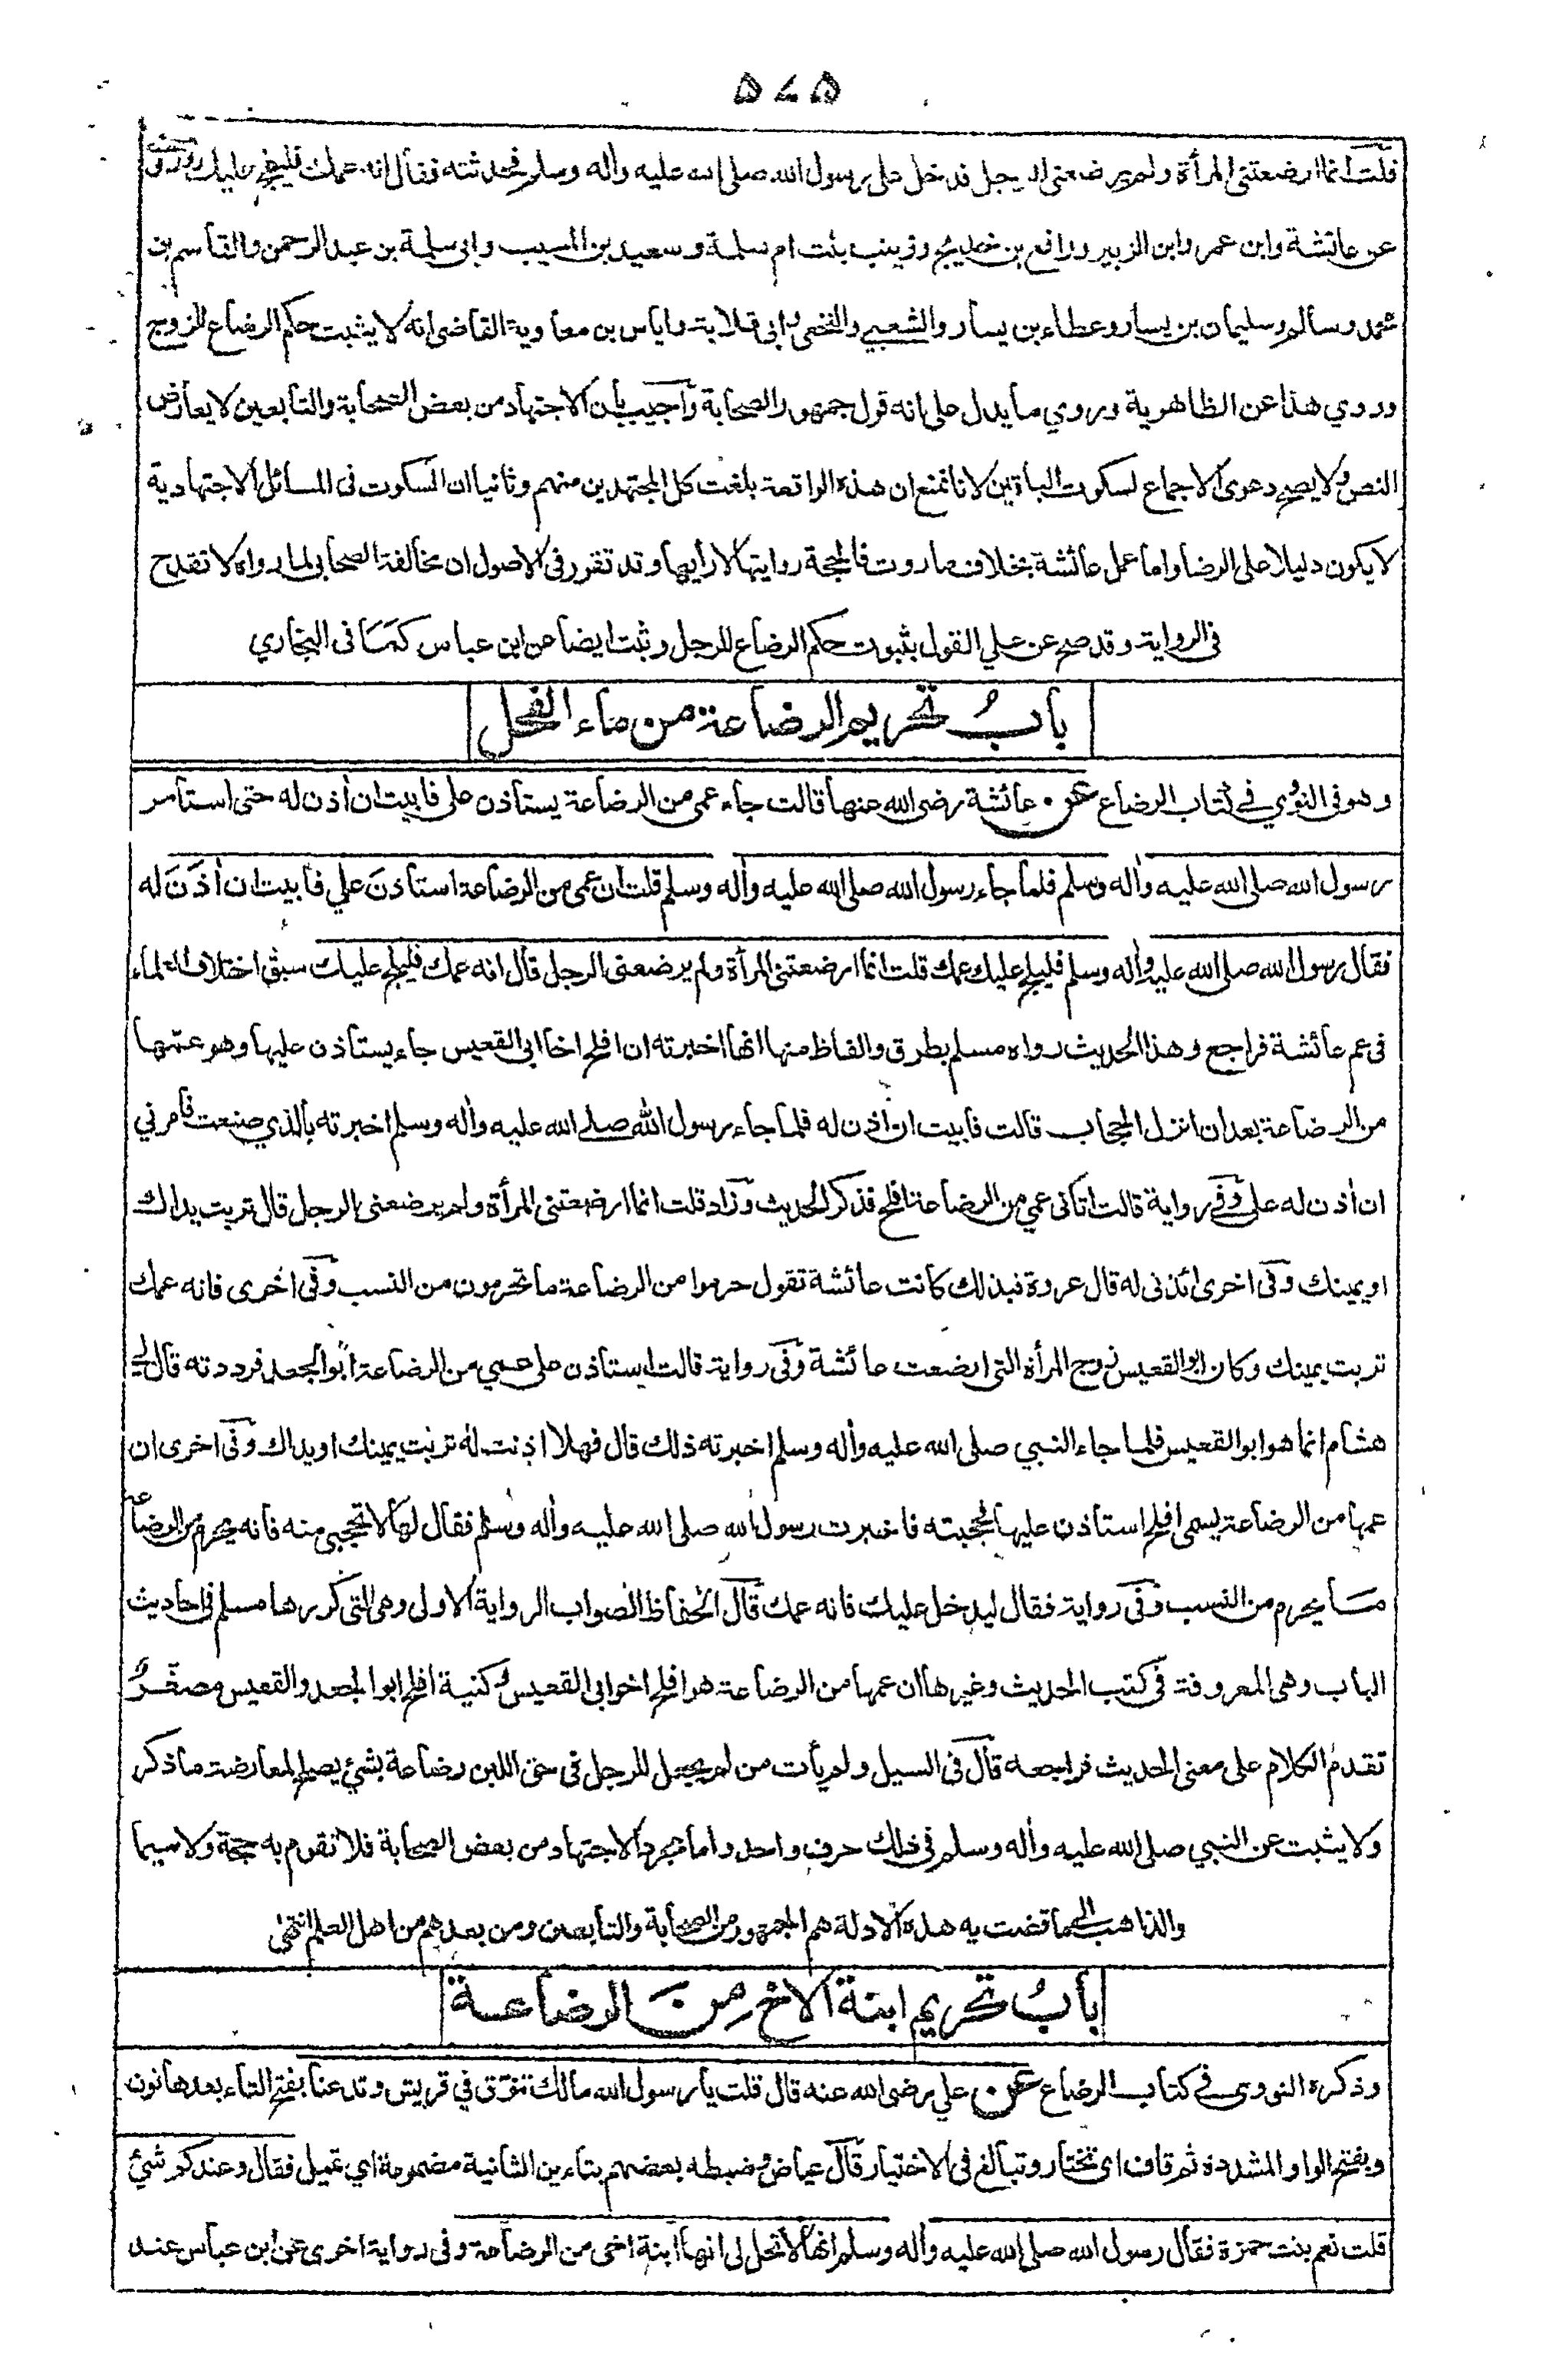 ٥٧٥
قلت انما ارضعتني المرأة ولم يرضعني الرجل فدخل على رسول الله صلى الله عليه وأله وسلم فحدثته فقال انه عمك فليلج عليك وروي
عن عائشة وابن عمر وابن الزبير ورافع بن خديج وزينب بنت ام سلمة وسعيد بن المسيب وابي سلمة بن عبد الرحمن والقاسم بن
محمد وسالم وسليمان بن يسار وعطاء بن يسار والشعبي والنخعي وابي قلابة واياس بن معاوية القاضي انه لا يثبت حكم الرضاع للزوج
وروي هذا عن الظاهرية وروي ما يدل على انه قول جمهور الصحابة وأجيب بان الاجتهاد من بعض الصحابة والتابعين لا يعارض
النص ولا يصح دعوى الاجماع لسكوت الباقين لانا نمنع ان هذه الواقعة بلغت كل المجتهدين منهم وثانيا ان السكوت في المسائل الاجتهادية
لا يكون دليلا على الرضا واما عمل عائشة بخلاف ما روت فالحجة روايتها لا رأيها وقد تقرر في الاصول ان مخالفة الصحابي لما رواه لا تقدح
في الرواية وقد صح عن علي القول بثبوت حكم الرضاع للرجل وثبت ايضا عن ابن عباس كما في البخاري
باب تحريم الرضاعة من ماء الفحل
وهو في النووي في كتاب الرضاع عن عائشة رضي الله عنها قالت جاء عمي من الرضاعة يستاذن علي فابيت ان أذن له حتى استامر
رسول الله صلى الله عليه وأله وسلم فلما جاء رسول الله صلى الله عليه وأله وسلم قلت ان عمي من الرضاعة استاذن علي فابيت ان أذن له
فقال رسول الله صلى الله عليه وأله وسلم فليلج عليك عمك قلت انما ارضعتني المرأة ولم يرضعني الرجل قال انه عمك فليلج عليك سبق اختلاف العلماء
في عم عائشة فراجع وهذا الحديث رواه مسلم بطرق والفاظ منها انها اخبرته ان افلح اخا ابي القعيس جاء يستاذن عليها وهو عمها
من الرضاعة بعد ان انزل الحجاب قالت فابيت ان أذن له فلما جاء رسول الله صلى الله عليه وأله وسلم اخبرته بالذي صنعت فامرني
ان أذن له علي وفي رواية قالت اتاني عمي من الرضاعة افلح فذكر الحديث وزاد قلت انما ارضعتني المرأة ولم يرضعني الرجل قال تربت يداك
او يمينك وفي اخرى ائذني له قال عروة فبذلك كانت عائشة تقول حرموا من الرضاعة ما تحرمون من النسب وفي اخرى فانه عمك
تربت يمينك وكان ابو القعيس زوج المرأة التي ارضعت عائشة وفي رواية قالت استاذن علي عمي من الرضاعة ابو الجعد فرددته قال لي
هشام انما هو ابو القعيس فلما جاء النبي صلى الله عليه وأله وسلم اخبرته ذلك قال فهلا اذنت له تربت يمينك او يداك وفي اخرى ان
عمها من الرضاعة يسمى افلح استاذن عليها فحجبته فاخبرت رسول الله صلى الله عليه وأله وسلم فقال لها لا تحتجبي منه فانه يحرم من الرضاعة
ما يحرم من النسب وفي رواية فقال ليدخل عليك فانه عمك قال الحفاظ الصواب الرواية الاولى وهي التي كررها مسلم في احاديث
الباب وهي المعروفة في كتب الحديث وغيرها ان عمها من الرضاعة هو افلح اخو ابي القعيس وكنية افلح ابو الجعد والقعيس مصغر
تقدم الكلام على معنى الحديث فراجعه قال في السيل ولم يأت من لم يجعل للرجل في حق اللبن رضاعة بشئ يصلح لمعارضة ما ذكر
ولا يثبت عن النبي صلى الله عليه وأله وسلم في ذلك حرف واحد واما مجرد الاجتهاد من بعض الصحابة فلا تقوم به حجة ولا سيما
والذاهب الى ما قضت به هذه الادلة هم الجمهور من الصحابة والتابعين ومن بعدهم من اهل العلم انتهى
باب تحريم ابنة الاخ من الرضاعة
وذكره النووي في كتاب الرضاع عن علي رضي الله عنه قال قلت يا رسول الله مالك تنوق في قريش وتدعنا بفتح التاء بعدها نون
وبفتح الواو المشددة ثم قاف اي تختار وتبالغ في الاختيار قال عياض وضبطه بعضهم بتاءين الثانية مضمومة اي تميل فقال وعندكم شئ
قلت نعم بنت حمزة فقال رسول الله صلى الله عليه وأله وسلم انها لا تحل لي انها ابنة اخي من الرضاعة وفي رواية اخرى عن ابن عباس عند